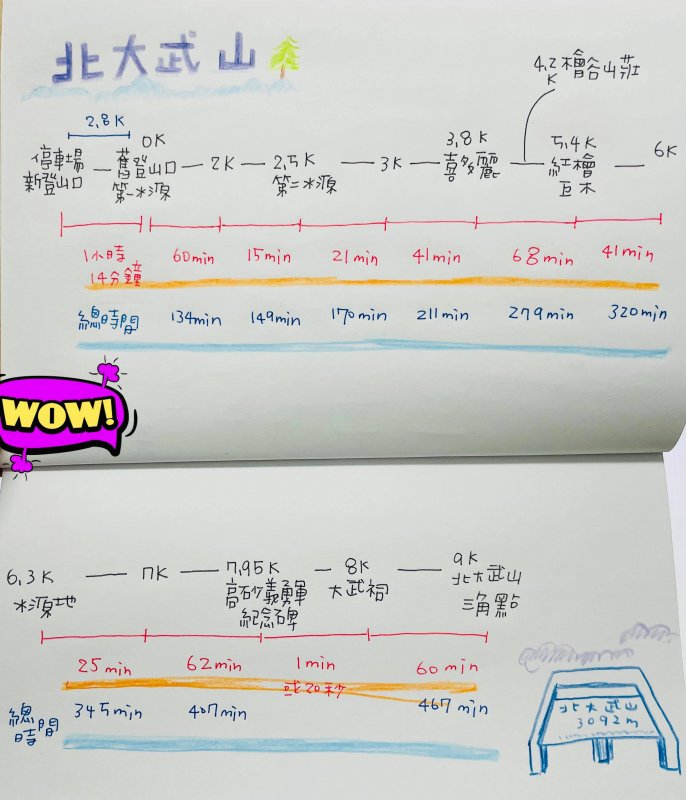 北大武山
4.2K 檜谷山莊
2.8K
停車場 新登山口
0K 舊登山口 第一水源
2K
2.5K 第二水源
3K
3.8K 喜多麗
5.4K 紅檜巨木
6K
1小時14分鐘 60min 15min 21min 41min 68min 41min
總時間 134min 149min 170min 211min 279min 320min
WOW!
6.3K 水源地
7K
7.95K 高砂義勇軍紀念碑
8K 大武祠
9K 北大武山 三角點
25min 62min 1min 或20秒 60min
總時間 345min 407min 467min
北大武山
3092m